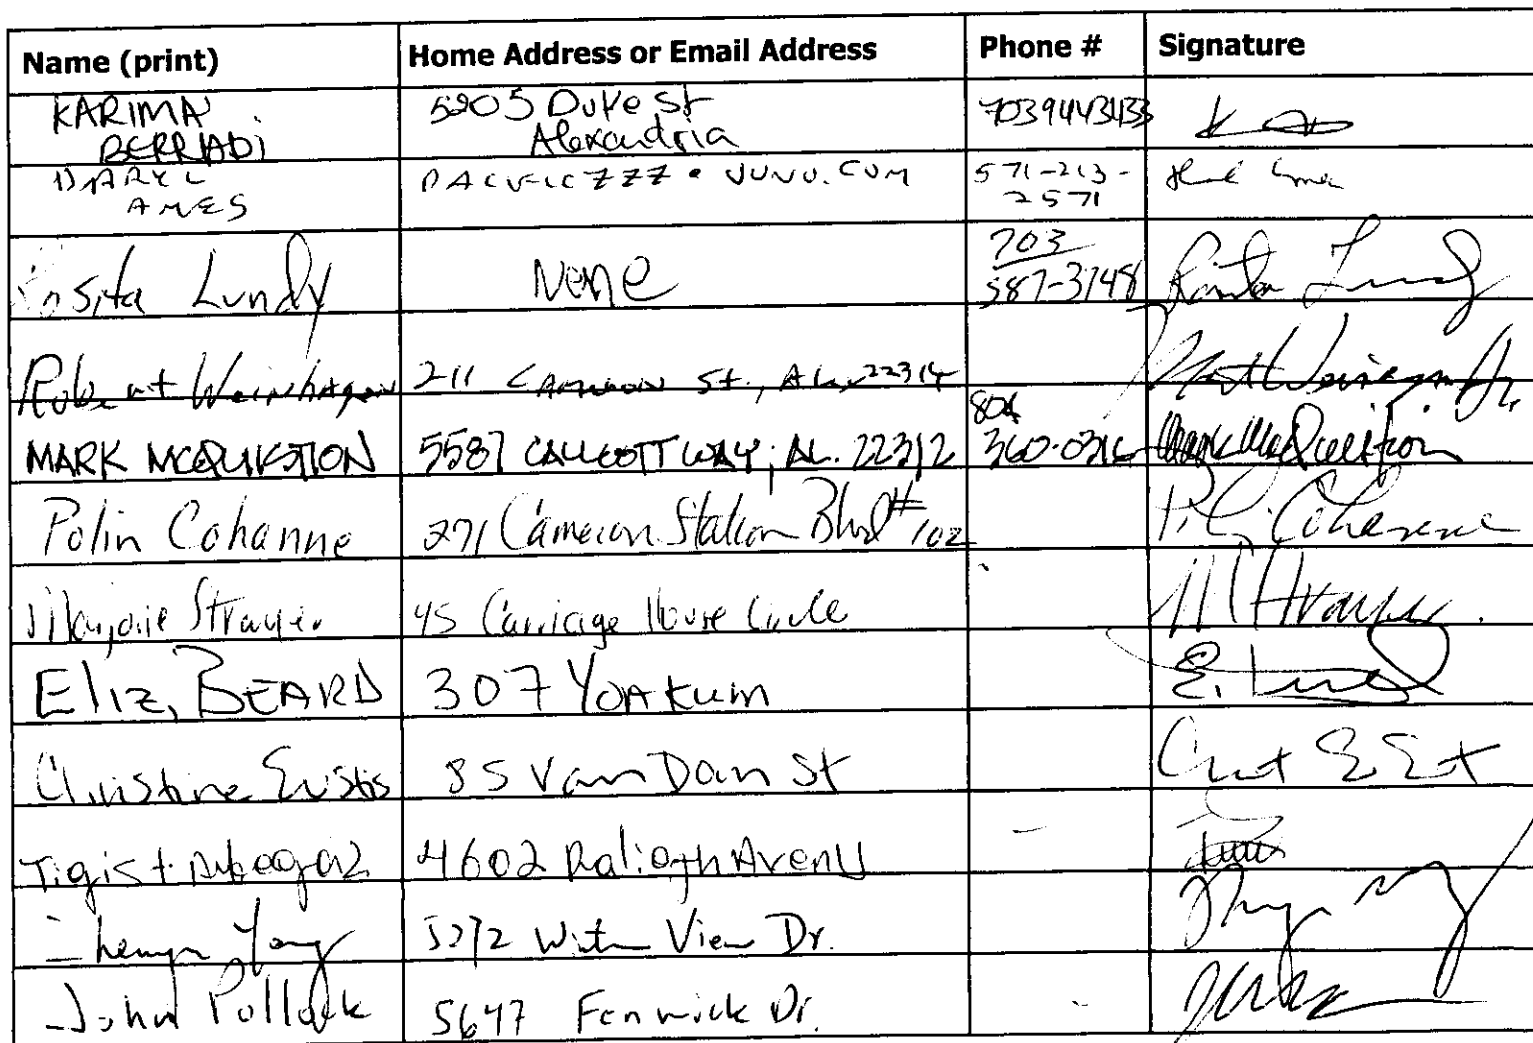 Name (print) Home Address or Email Address Phone # Signature
KARIMA 5905 Duke St 7039443433
BERRIADI Alexandria
DARYL PACIFICZZZ @ JUNO.COM 571-213-
AMES 2571
703
Rosita Lundy None 587-3748 Rosita Lundy
Robert Weinhagen 211 Cameron St., Alex 22314
804
MARK MCQUISTION 5587 CALLCOTT WAY; AL. 22312 360-0316 Mark McQuistion
Polin Cohanne 271 Cameron Station Blvd #102 P. Cohanne
Marjorie Strayer 45 Carriage House Circle M Strayer
Eliz, BEARD 307 YOAKUM
Christine Eustis 85 Van Dorn St
Tigist 4602 Raliegh Avenu
Yang 5272 View Dr.
John Pollock 5647 Fenwick Dr.